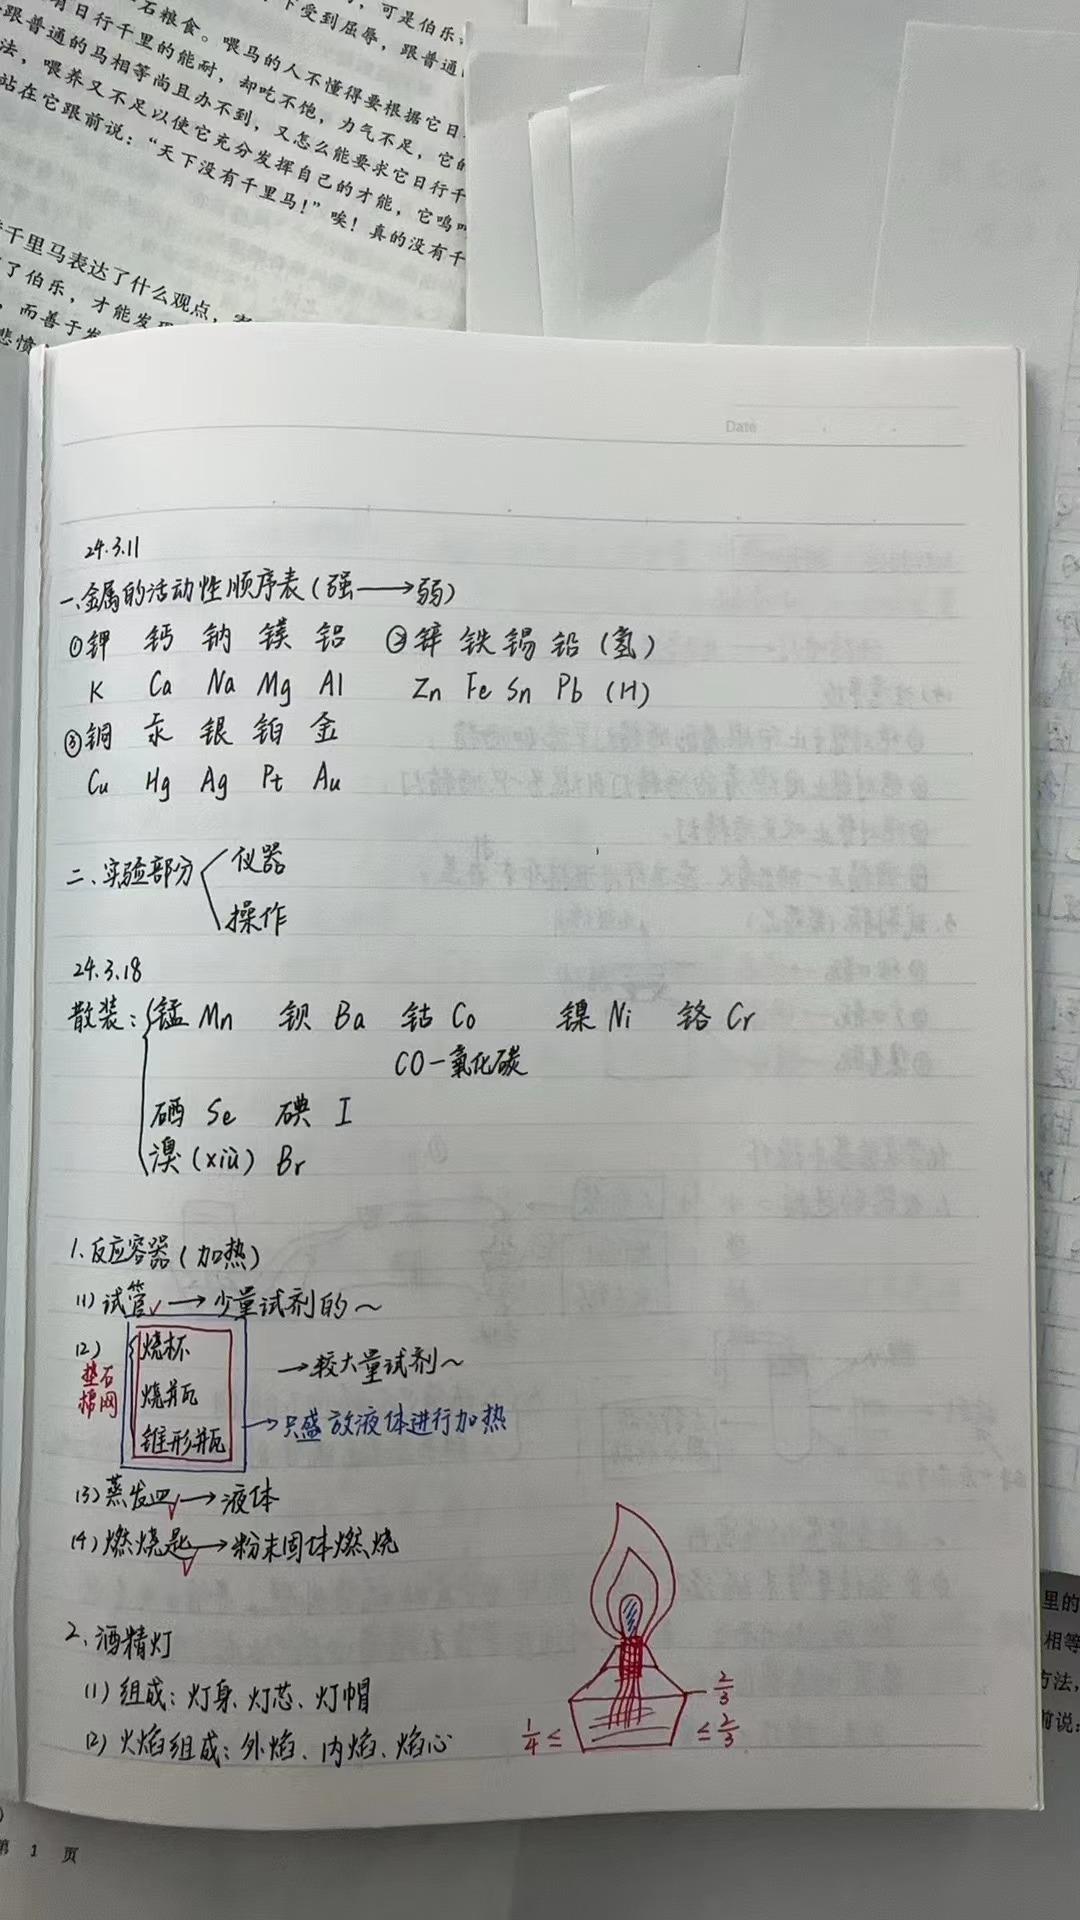 可是伯乐
石粮食。
下受到屈辱，跟普通
有日行千里的能耐，却吃不饱，力气不足，它的
喂马的人不懂得要根据它日
跟普通的马相等尚且办不到，又怎么能要求它日行千
法，喂养又不足以使它充分发挥自己的才能，它鸣叫
站在它跟前说：“天下没有千里马！”唉！真的没有千
千里马表达了什么观点，
了伯乐，才能发现
，而善于发
悲愤
Date
24.3.11
一、金属的活动性顺序表（强→弱）
①钾 钙 钠 镁 铝 ②锌 铁 锡 铅（氢）
K Ca Na Mg Al Zn Fe Sn Pb (H)
③铜 汞 银 铂 金
Cu Hg Ag Pt Au
二、实验部分
仪器
操作
24.3.18
散装：锰 Mn 钡 Ba 钴 Co 镍 Ni 铬 Cr
CO一氧化碳
硒 Se 碘 I
溴（xiù）Br
1、反应容器（加热）
(1)试管✓→少量试剂的～
(2) 烧杯
垫石棉网
烧瓶
锥形瓶
→较大量试剂～
→只盛放液体进行加热
(3)蒸发皿✓→液体
(4)燃烧匙✓→粉末固体燃烧
2、酒精灯
(1)组成：灯身、灯芯、灯帽
(2)火焰组成：外焰、内焰、焰心
2/3
1/4≤ ≤2/3
里的
相等
方法，
前说：
第 1 页